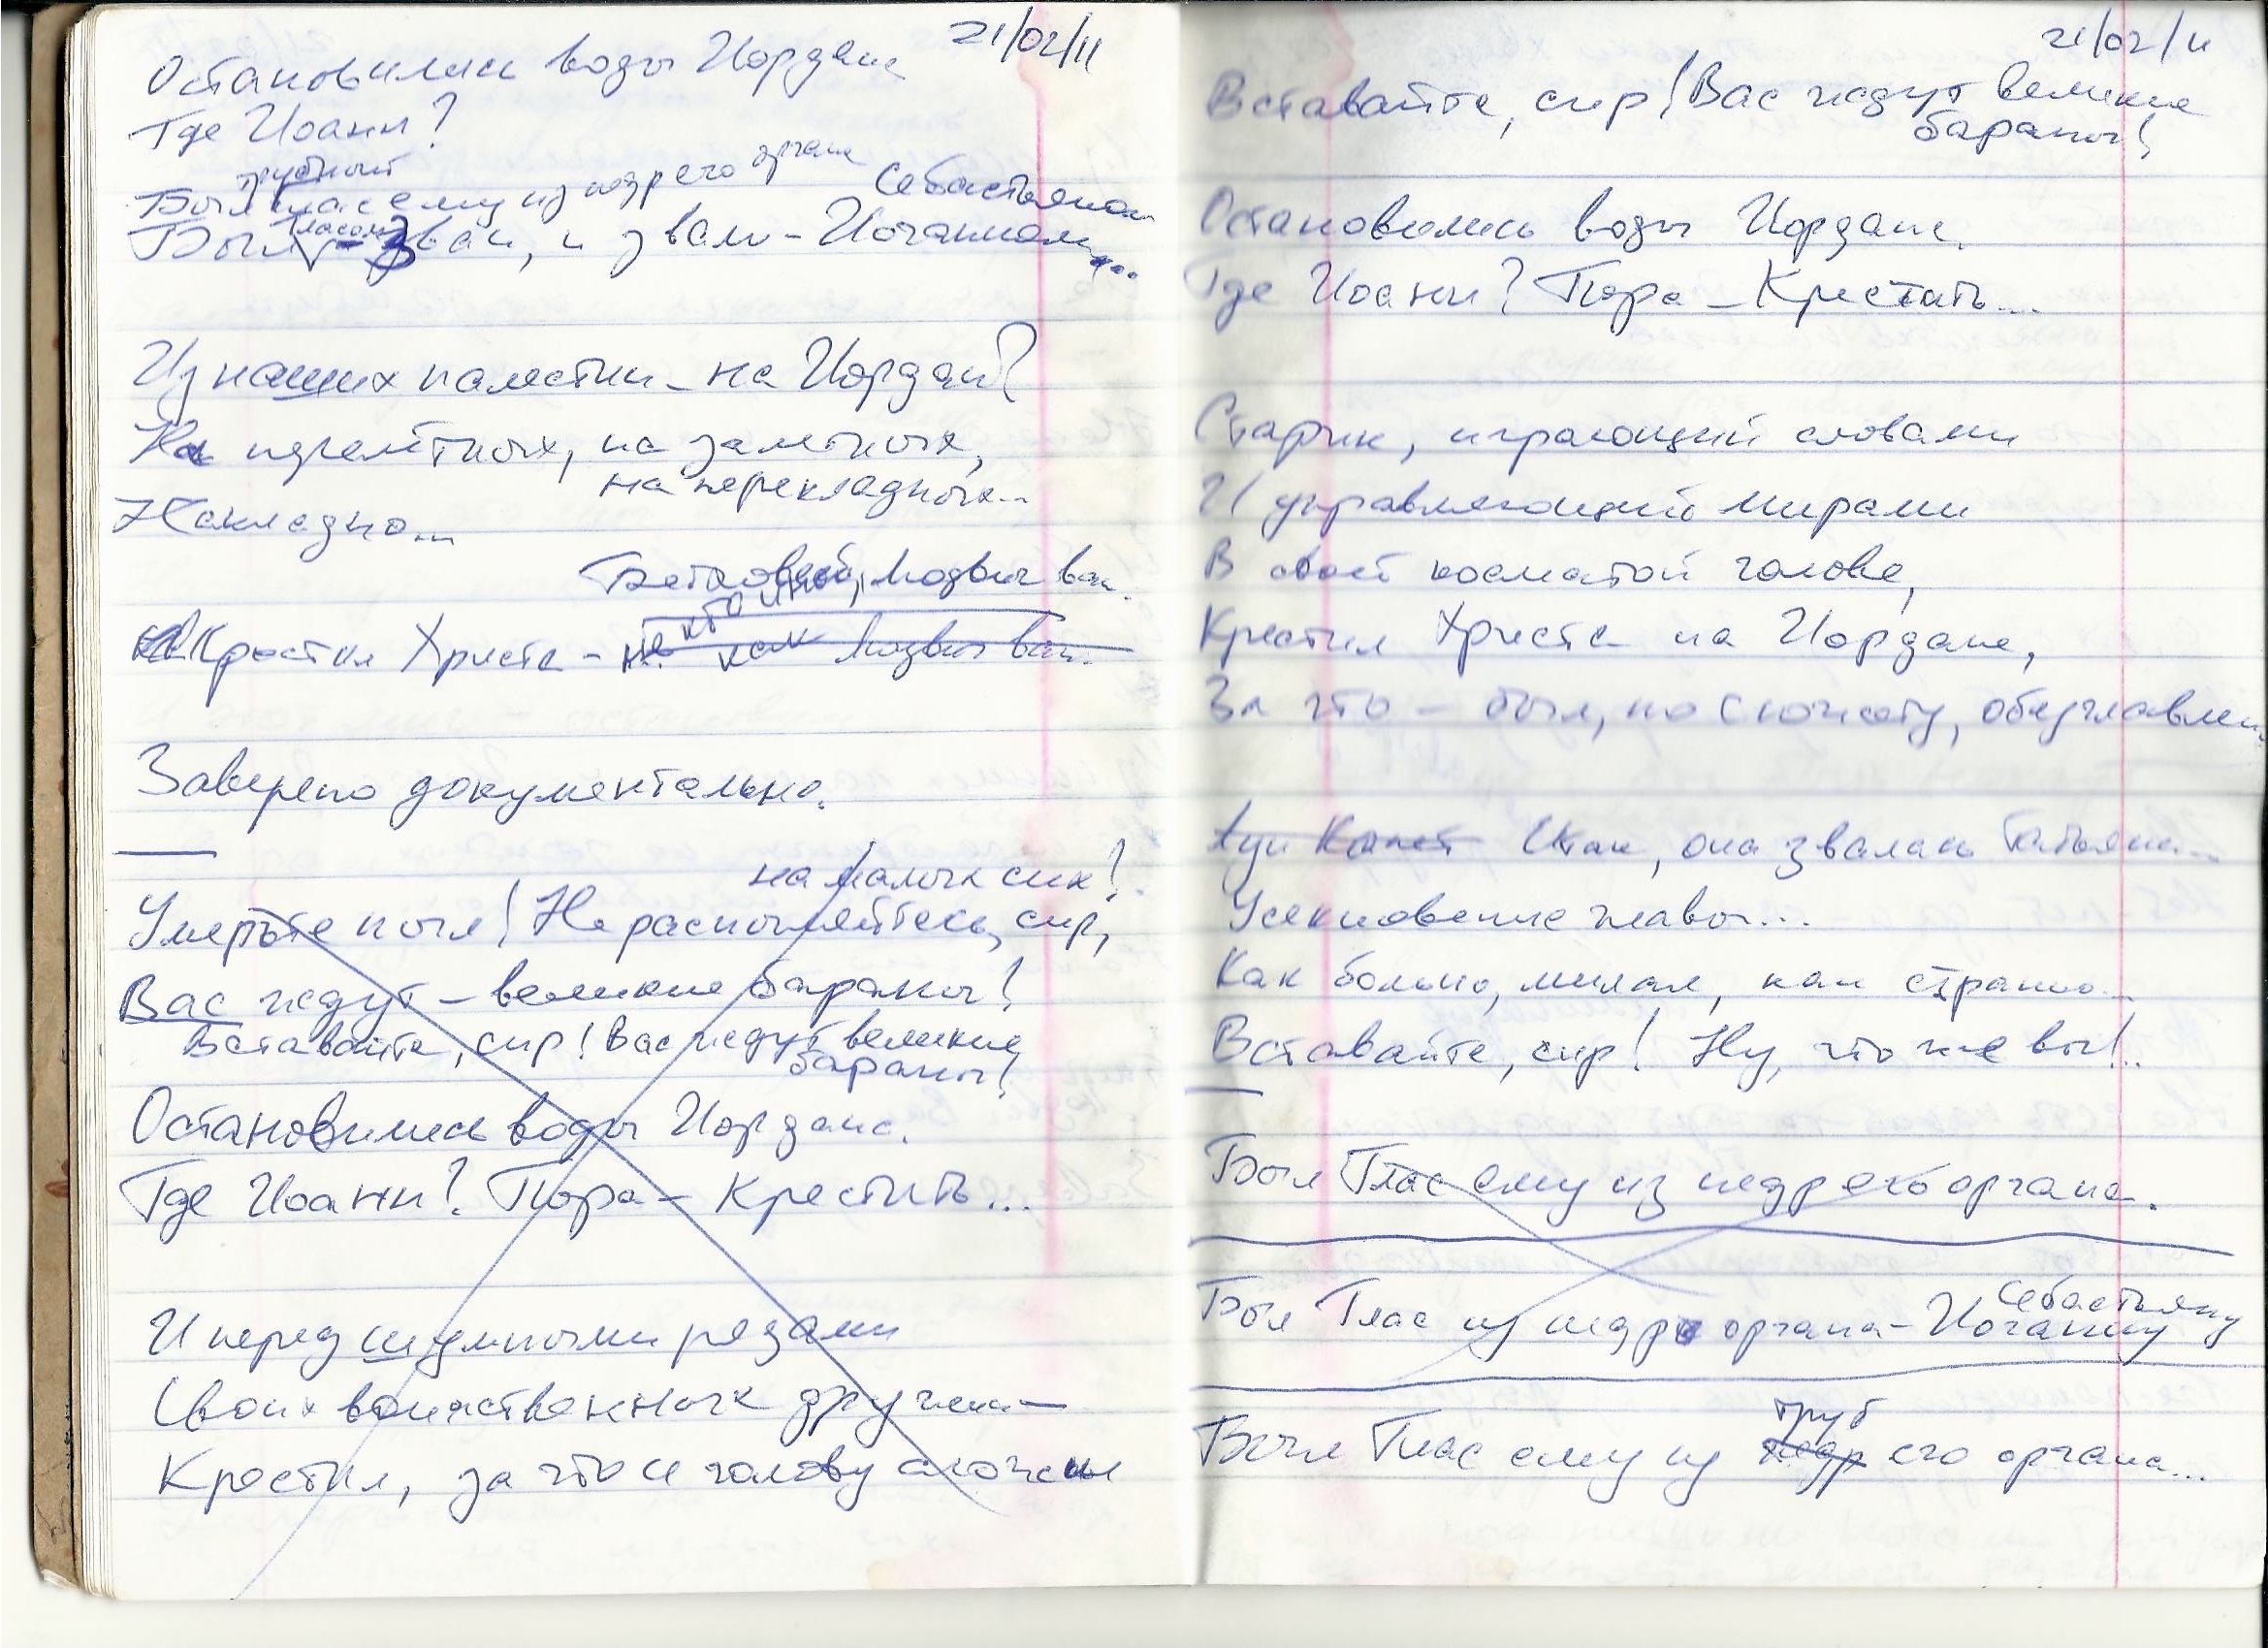 21/02/11
Остановились воды Иордана
Где Иоанн?
трубный
Был глас ему из недр его органа
Себастьяном
гласом
Был - зван, и звали - Иоганном...
Из наших палестин - на Иордан?
На
на
на перекладных...
Накладно...
Бетховен, Людвиг ван.
кто иной,
Крестил Христа - не как Людвиг ван.
Заверено документально.
на малых сих!
Умерьте пыл! Не распыляйтесь, сир,
Вас ждут - великие бараны!
Вставайте, сир! Вас ждут великие
бараны!
Остановились воды Иордана.
Где Иоанн? Пора - Крестить...
И перед шумными рядами
Своих воинственных дружин -
Крестил, за что и голову сложил
21/02/11
Вставайте, сир! Вас ждут великие
бараны!
Остановились воды Иордана.
Где Иоанн? Пора - Крестить...
Старик, играющий словами
И управляющий мирами
В своей косматой голове,
Крестил Христа на Иордане,
За что - был, по сюжету, обезглавлен
Итак, она звалась Татьяна...
Усекновение главы...
Как больно, милая, как странно...
Вставайте, сир! Ну, что же вы!..
Был Глас ему из недр его органа.
Себастьяну
Был Глас из недр органа - Иоганну
труб
Был Глас ему из недр его органа...